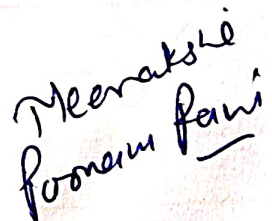 Meenakshi
Poonam Pani